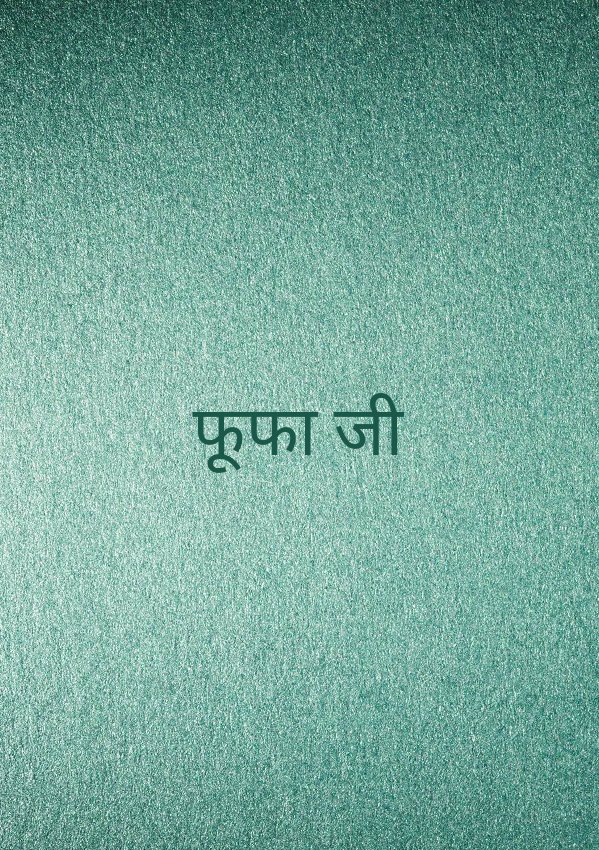 फूफा जी